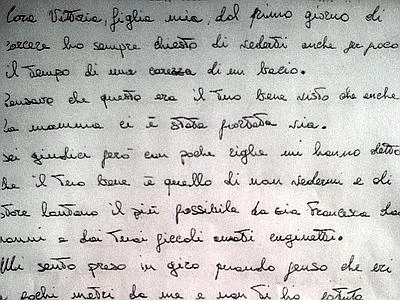 Cara Vittoria, figlia mia, dal primo giorno di
carcere ho sempre chiesto di vederti anche per poco
il tempo di una carezza di un bacio.
Pensavo che questo era il tuo bene visto che anche
la mamma ci è stata portata via.
sei giudici però con poche righe mi hanno detto
che il tuo bene è quello di non vedermi e di
stare lontano il più possibile da zia Francesca dai
nonni e dai tuoi piccoli amati cuginetti.
Mi sento preso in giro quando penso che eri
a pochi metri da me e non ti ho potuta